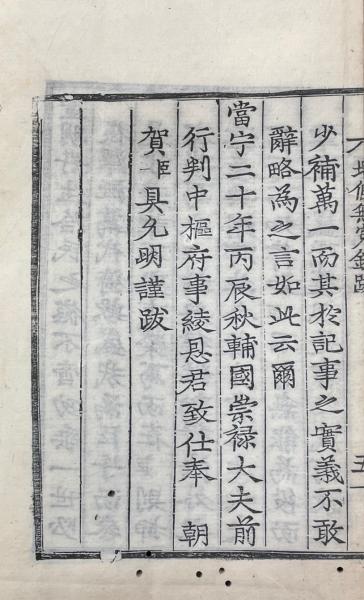 少補萬一而其於記事之實義不敢
辭略爲之言如此云爾
當宁二十年丙辰秋輔國崇祿大夫前
行判中樞府事綾恩君致仕奉 朝
賀臣具允明謹跋